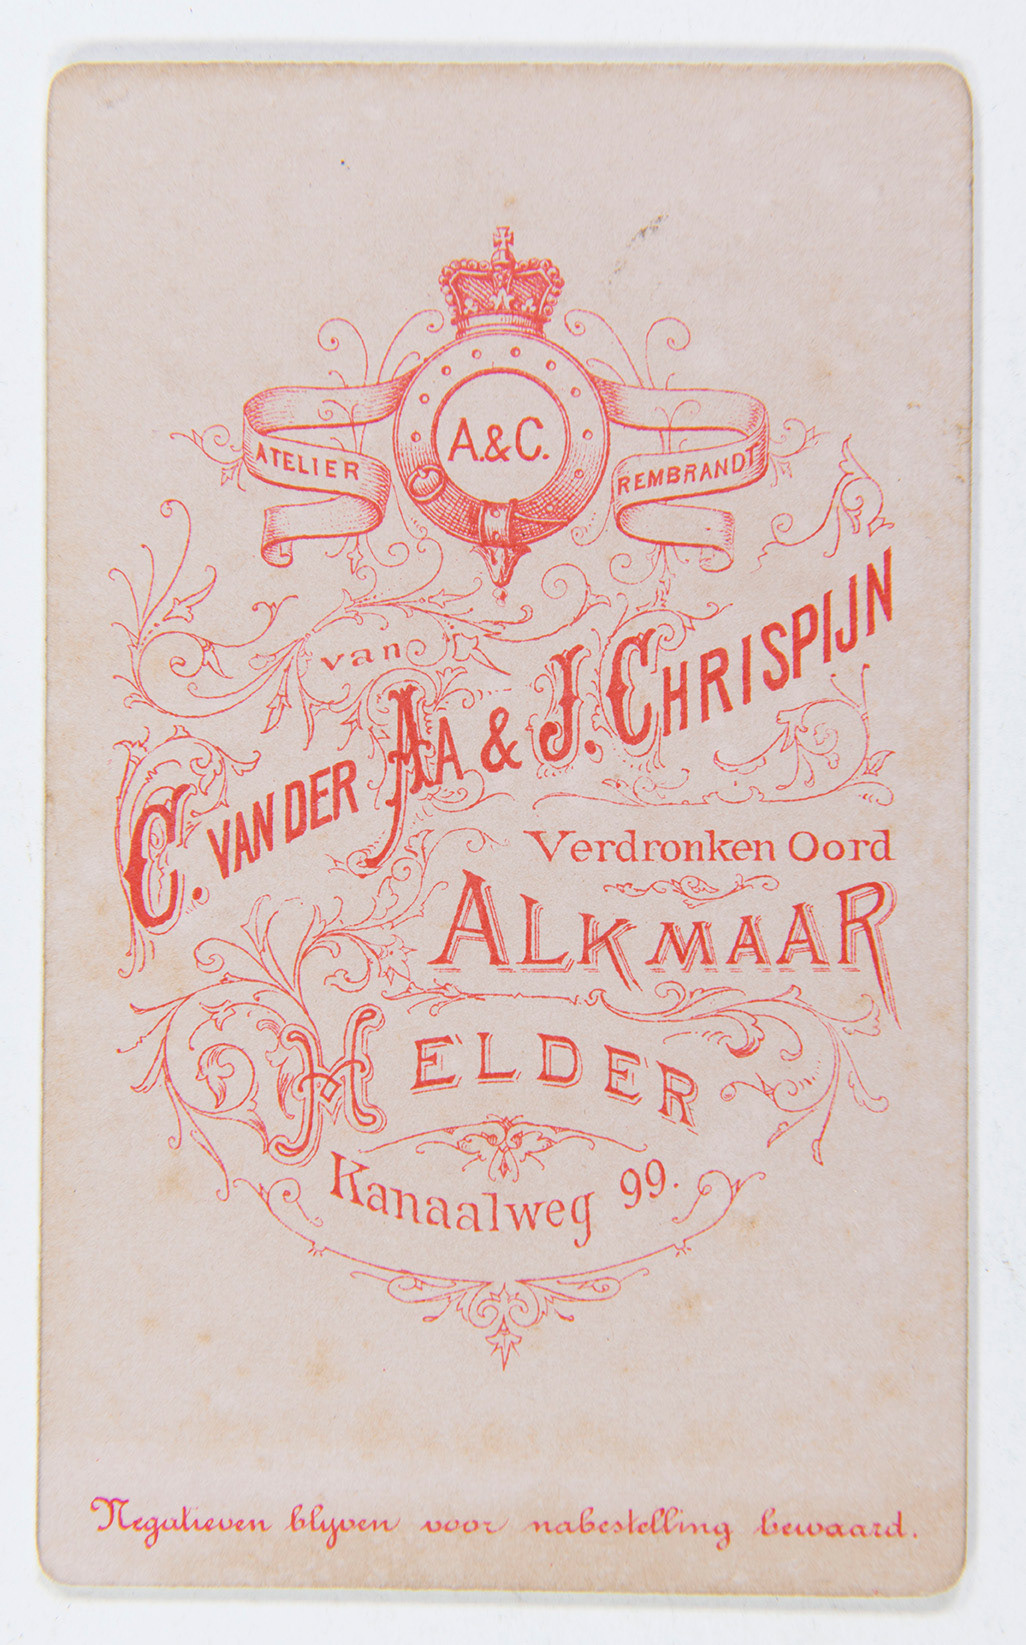 A.&C.
ATELIER REMBRANDT
van
C. VAN DER AA & J. CHRISPIJN
Verdronken Oord
ALKMAAR
HELDER
Kanaalweg 99.
Negatieven blyven voor nabestelling bewaard.